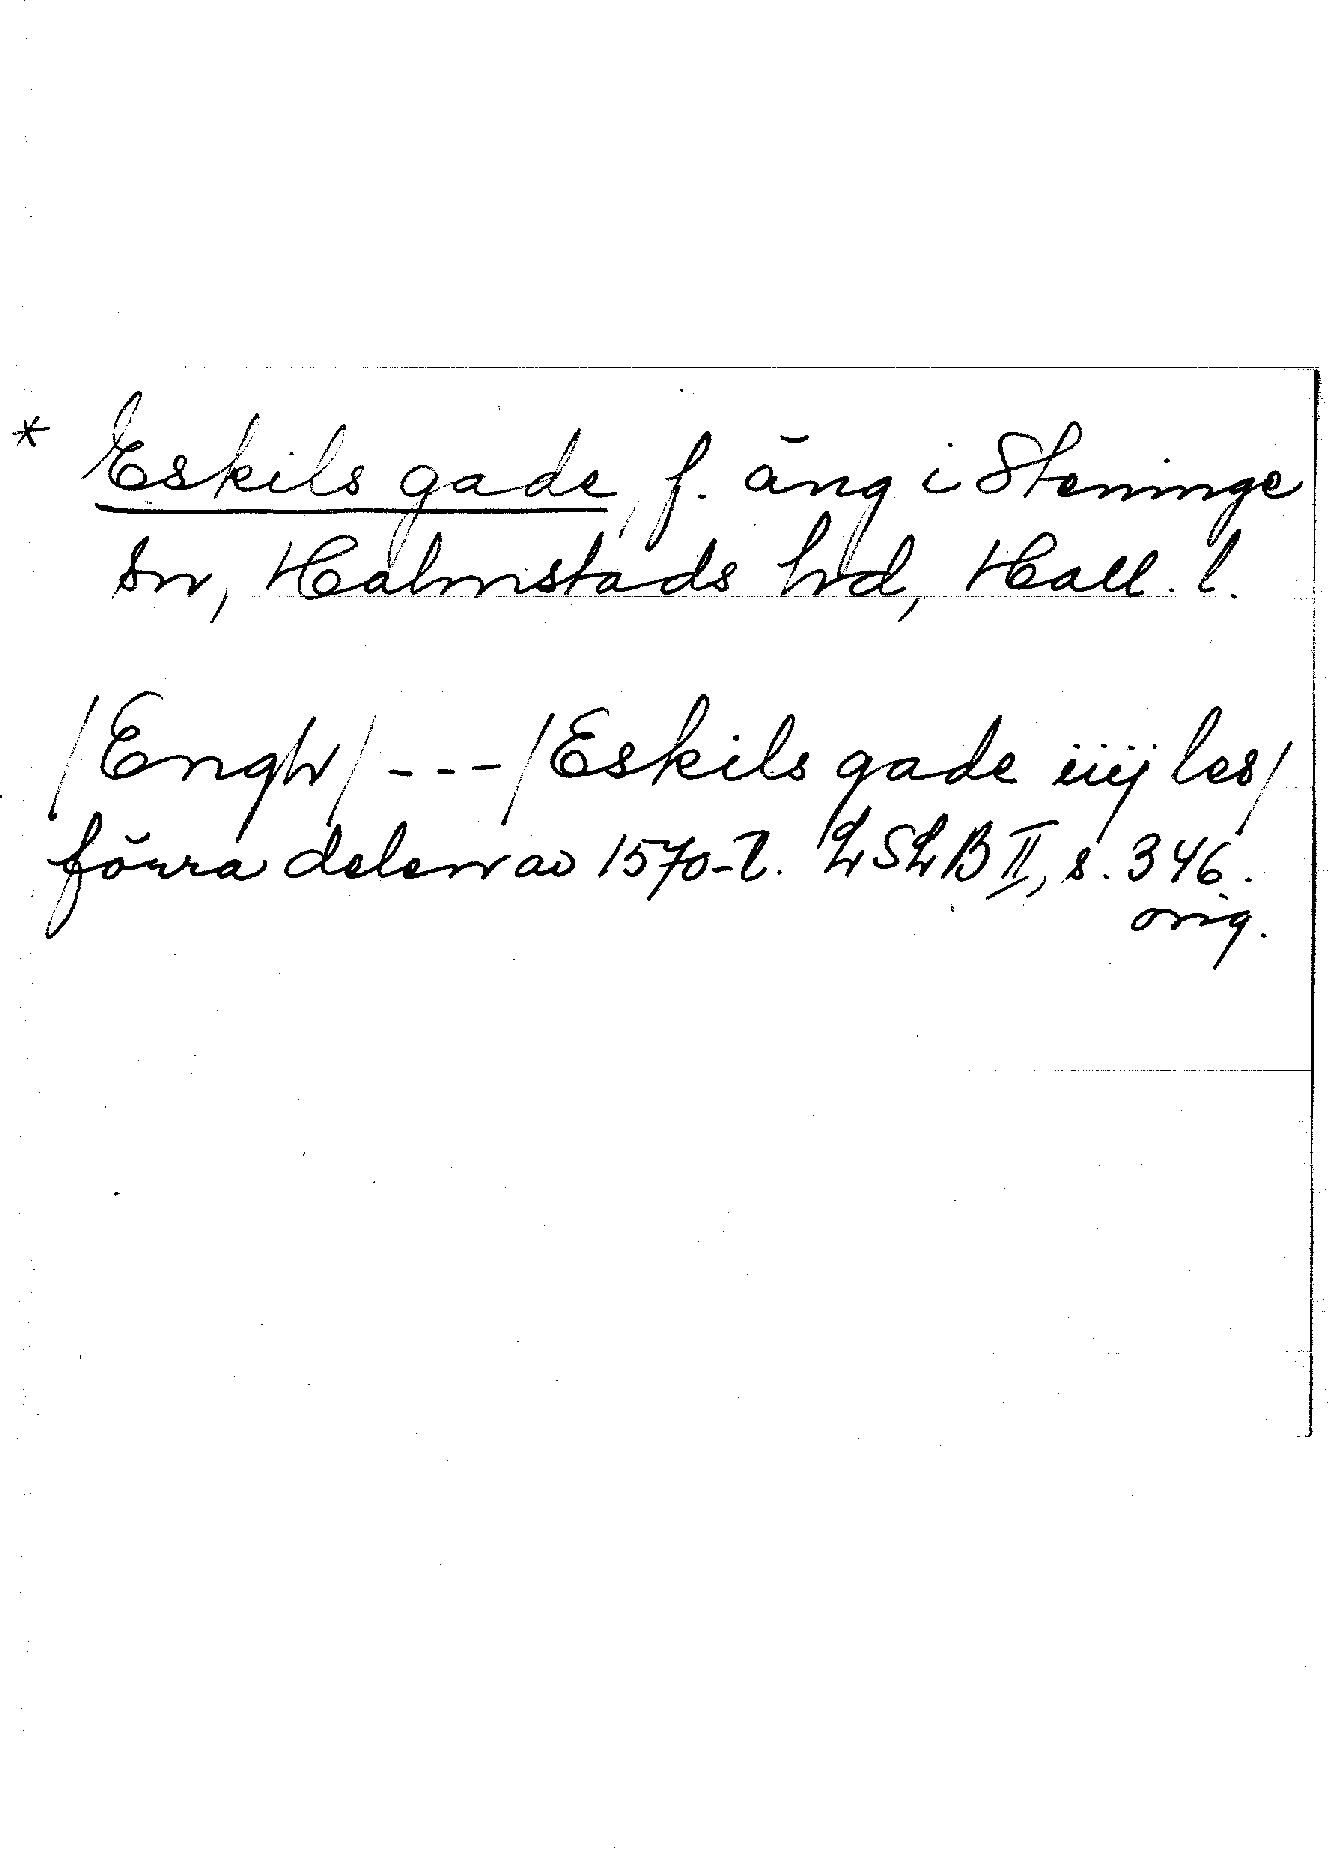 * Eskils gade, f. äng i Steninge
sn, Halmstads hd, Hall. l.
/Engh/ - - - /Eskils gade iiij les/
förra delen av 1570-t. LSLB II, s. 346.
orig.